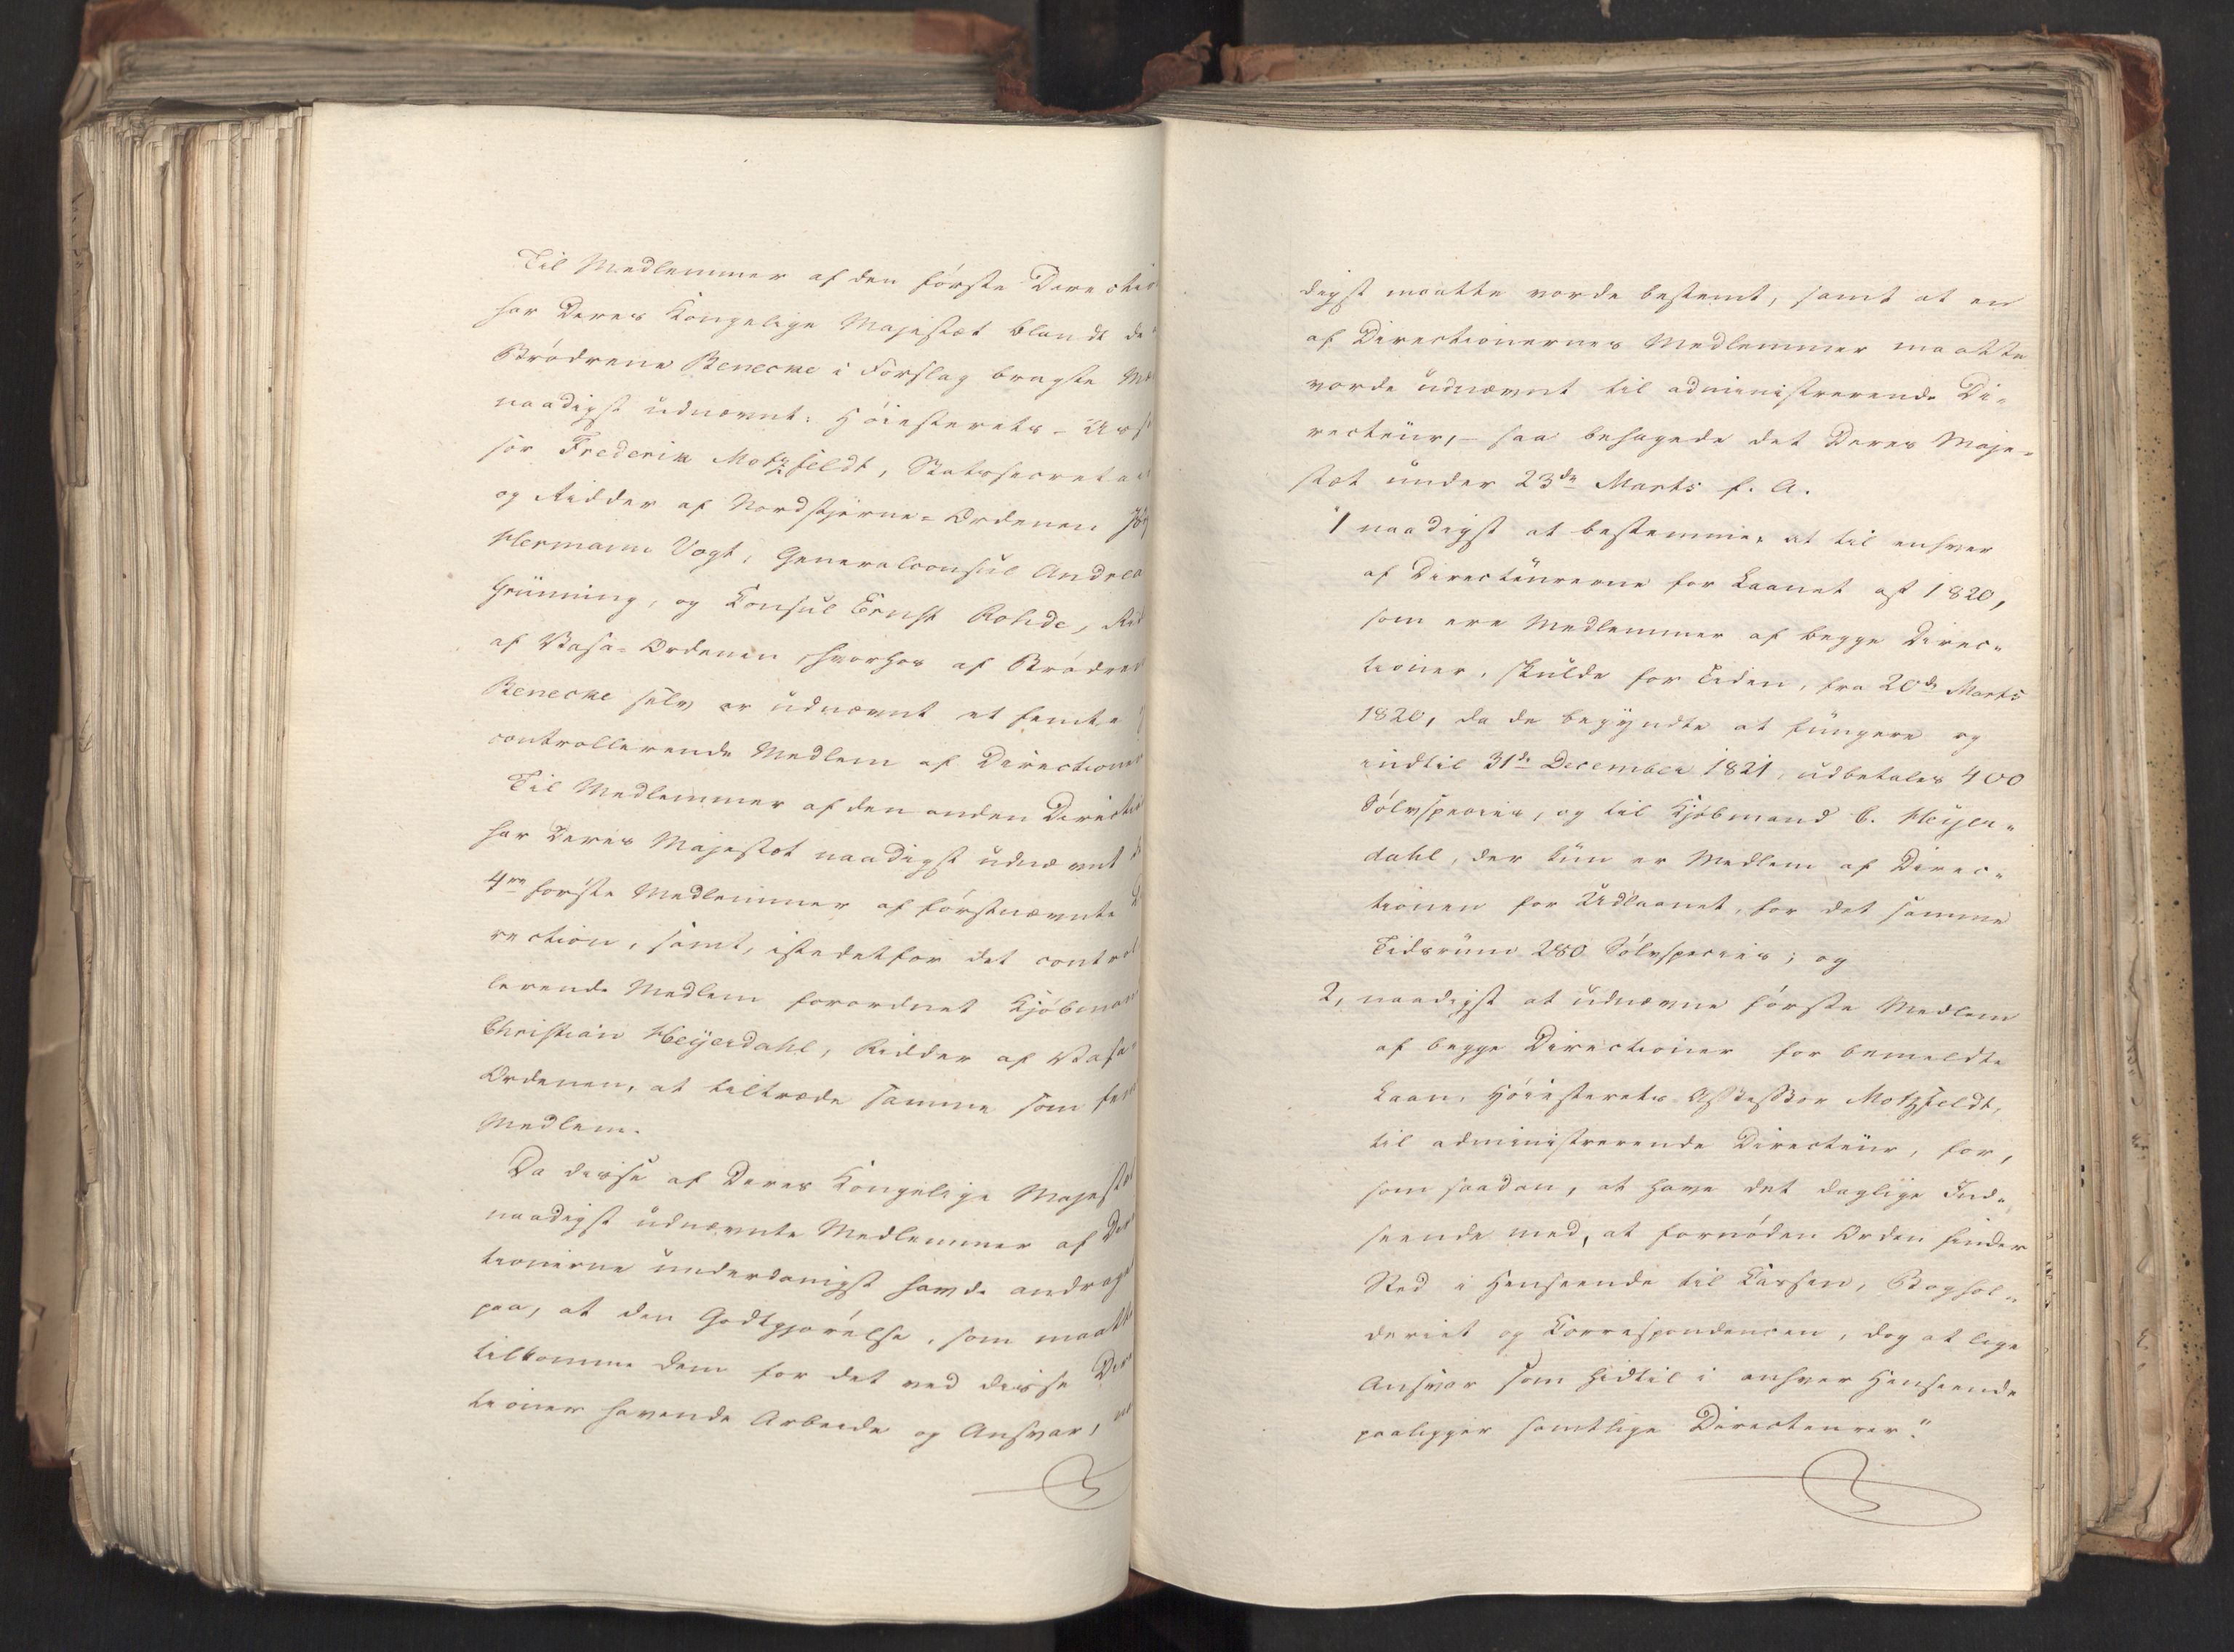 Til Medlemmer af den første Directio
har Deres Kongelige Majestæt blandt de
Brødrene Benecke i Forslag bragte Mæ
naadigst udnævnt: Høiesterets-Asse
sor Frederik Motzfeldt, Statssecretair
og Ridder af Nordstjerne-Ordenen Jør
Hermann Vogt, Generalconsul Andrea
Grünning, og Consul Ernst Rohde, Rid
af Vasa-Ordenen, hvorhos af Brødren
Benecke selv er udnævnt et femte
controllerende Medlem af Directionen
Til Medlemmer af den anden Directio
har Deres Majestæt naadigst udnævnt
4re første Medlemmer af førstnævnte D
rection, samt, istedetfor det control
lerende Medlem forordnet Kjøbman
Christian Heÿerdahl, Ridder af Vasa-
Ordenen, at tiltræde samme som fem
Medlem.
Da disse af Deres Kongelige Majestæt
naadigst udnævnte Medlemmer af Dir
tionerne underdanigst havde androget
paa, at den Godtgjørelse, som maatte
tilkomme dem for det ved disse Dire
tioner havende Arbeide og Ansvar, na
digst maatte vorde bestemt, samt at en
af Directionernes Medlemmer maatte
vorde udnævnt til administrerende Di-
recteur, – saa behagede det Deres Maje-
stæt under 23de Marts f. A.
"1 naadigst at bestemme, at til enhver
af Directeurerne for Laanet af 1820,
som ere Medlemmer af begge Direc-
tioner, skulde for Tiden, fra 20de Marts
1820, da de begyndte at fungere og
indtil 31te December 1821, udbetales 400
Sølvspecies, og til Kjøbmand C. Heÿer-
dahl, der kun er Medlem af Direc-
tionen for Udlaanet, for det samme
Tidsrum 280 Sølvspecies; og
2, naadigst at udnævne første Medlem
af begge Directioner for bemeldte
Laan, Høiesterets Assessor Motzfeldt,
til administrerende Directeur, for,
som saadan, at have det daglige Ind-
seende med, at fornøden Orden finder
Sted i Henseende til Cassen, Boghol-
deriet og Correspondencen, dog at lige
Ansvar som hidtil i enhver Henseende
paaligger samtlige Directeurer."